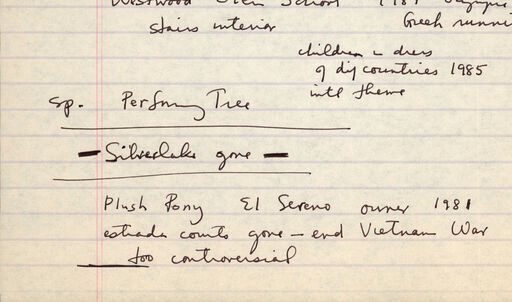 Westwood School 1984
stairs interior Greek runni
children in dress
of dif countries 1985
intl theme
sp. Perfumy Tree
— Silverlake gone —
Plush Pony El Sereno owner 1981
estrada courts gone – end Vietnam War
too controversial